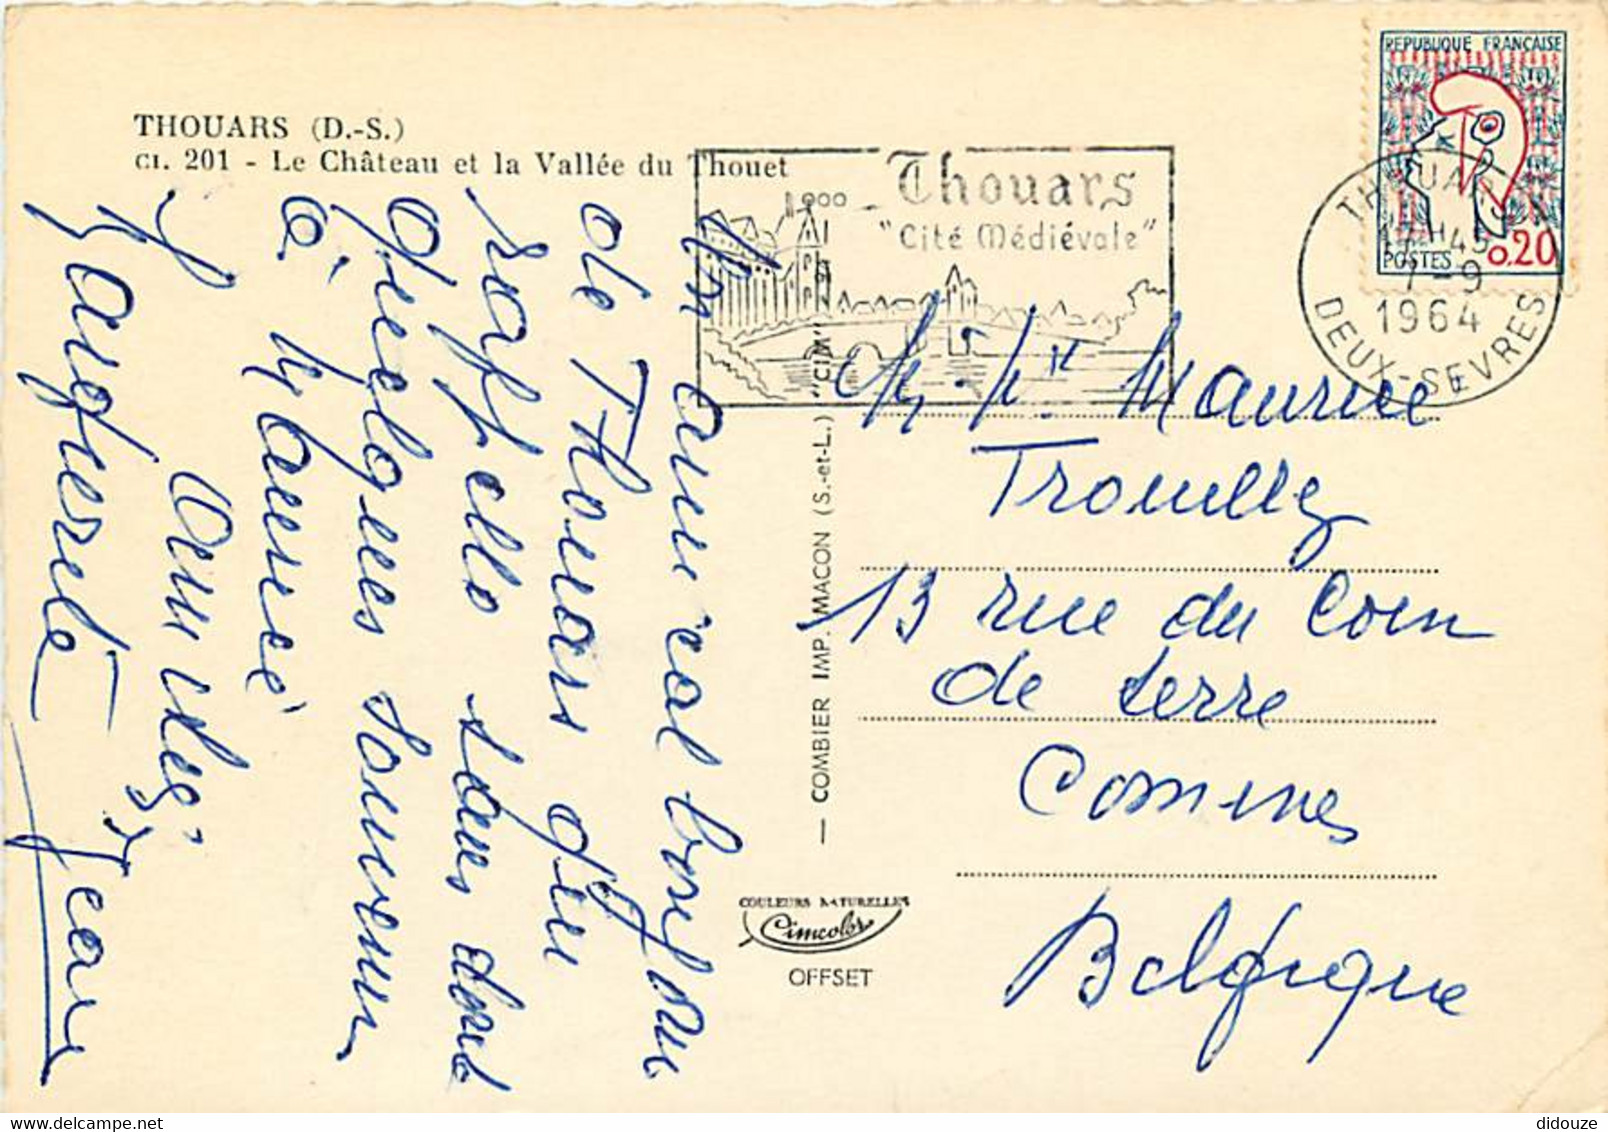 THOUARS (D.-S.)
CI. 201 - Le Château et la Vallée du Thouet
Thouars
"Cité Médiévale"
REPUBLIQUE FRANÇAISE
POSTES 0,20
THOUARS
17 H 45
7-9
1964
DEUX-SEVRES
Un amical bonjour
de Thouars qui
rappelle sans
quelques souvenirs
à Maurice
Amitiés.
Marguerite Jean
— COMBIER IMP. MACON (S.-et-L.) "CIM"
COULEURS NATURELLES
Cimcolor
OFFSET
Maurice
13 rue du Coin
de terre
Comines
Belgique
didouze